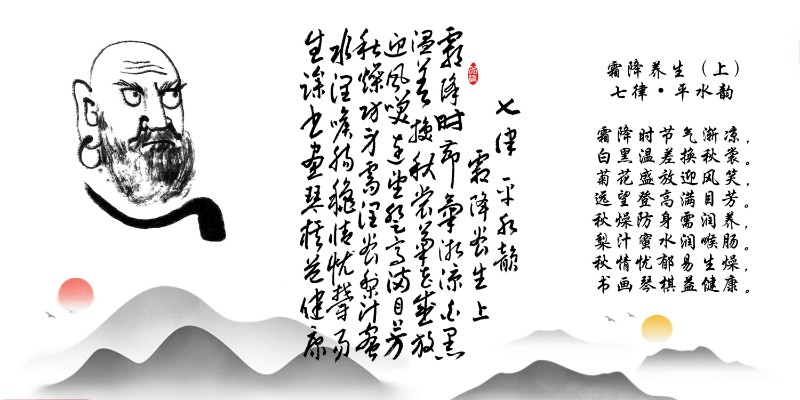 霜降养生（上）
七律·平水韵
霜降时节气渐凉，
白黑温差换秋裳。
菊花盛放迎风笑，
远望登高满目芳。
秋燥防身需润养，
梨汁蜜水润喉肠。
秋情忧郁易生燥，
书画琴棋益健康。
七律 平水韵
霜降养生上
霜降时节气渐凉白黑
温差换秋裳菊花盛放
迎风笑远望登高满目芳
秋燥防身需润养梨汁蜜
水润喉肠秋情忧郁易
生燥书画琴棋益健康